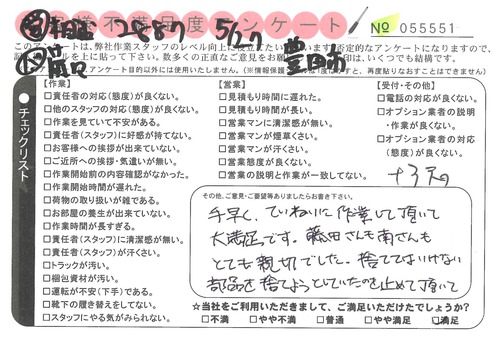 満足度アンケート
No 055551
2887 567
豊田市
このアンケートは、弊社作業スタッフのレベル向上に役立てたい
否定的なアンケートになりますので、
数多くの正直なご意見をお願
印は、いくつでも結構です。
アンケート目的以外には使用いたしません。(情報保護シール
はがすと、再度貼りなおすことはできません)
チェックリスト
【作業】
□責任者の対応(態度)が良くない。
□他のスタッフの対応(態度)が良くない。
□作業を見ていて不安がある。
□責任者(スタッフ)に好感が持てない。
□お客様への挨拶が出来ていない。
□ご近所への挨拶・気遣いが無い。
□作業開始前の内容確認がなかった。
□作業開始時間が遅れた。
□荷物の取り扱いが雑である。
□お部屋の養生が出来ていない。
□作業時間が長すぎる。
□責任者(スタッフ)に清潔感が無い。
□責任者(スタッフ)が汗くさい。
□トラックが汚い。
□梱包資材が汚い。
□運転が不安(下手)である。
□靴下の履き替えをしてない。
□スタッフにやる気がみられない。
【営業】
□見積もり時間に遅れた。
□見積もり時間が長い。
□営業マンに清潔感が無い。
□営業マンが煙草くさい。
□営業マンが汗くさい。
□営業態度が良くない。
□営業の説明と作業が一致してない。
【受付・その他】
□電話の対応が良くない。
□オプション業者の説明
・作業が良くない。
□オプション業者の対応
(態度)が良くない。
その他、ご意見・ご要望等ありましたらお書き下さい。
手早く、ていねいに作業して頂いて
大満足です。藤田さんも南さんも
とても親切でした。捨ててはいけない
部品を捨てようとしていたのを止めて頂いて
☆当社をご利用いただきまして、ご満足いただけたでしょうか?
□不満 □やや不満 □普通 □やや満足 □満足